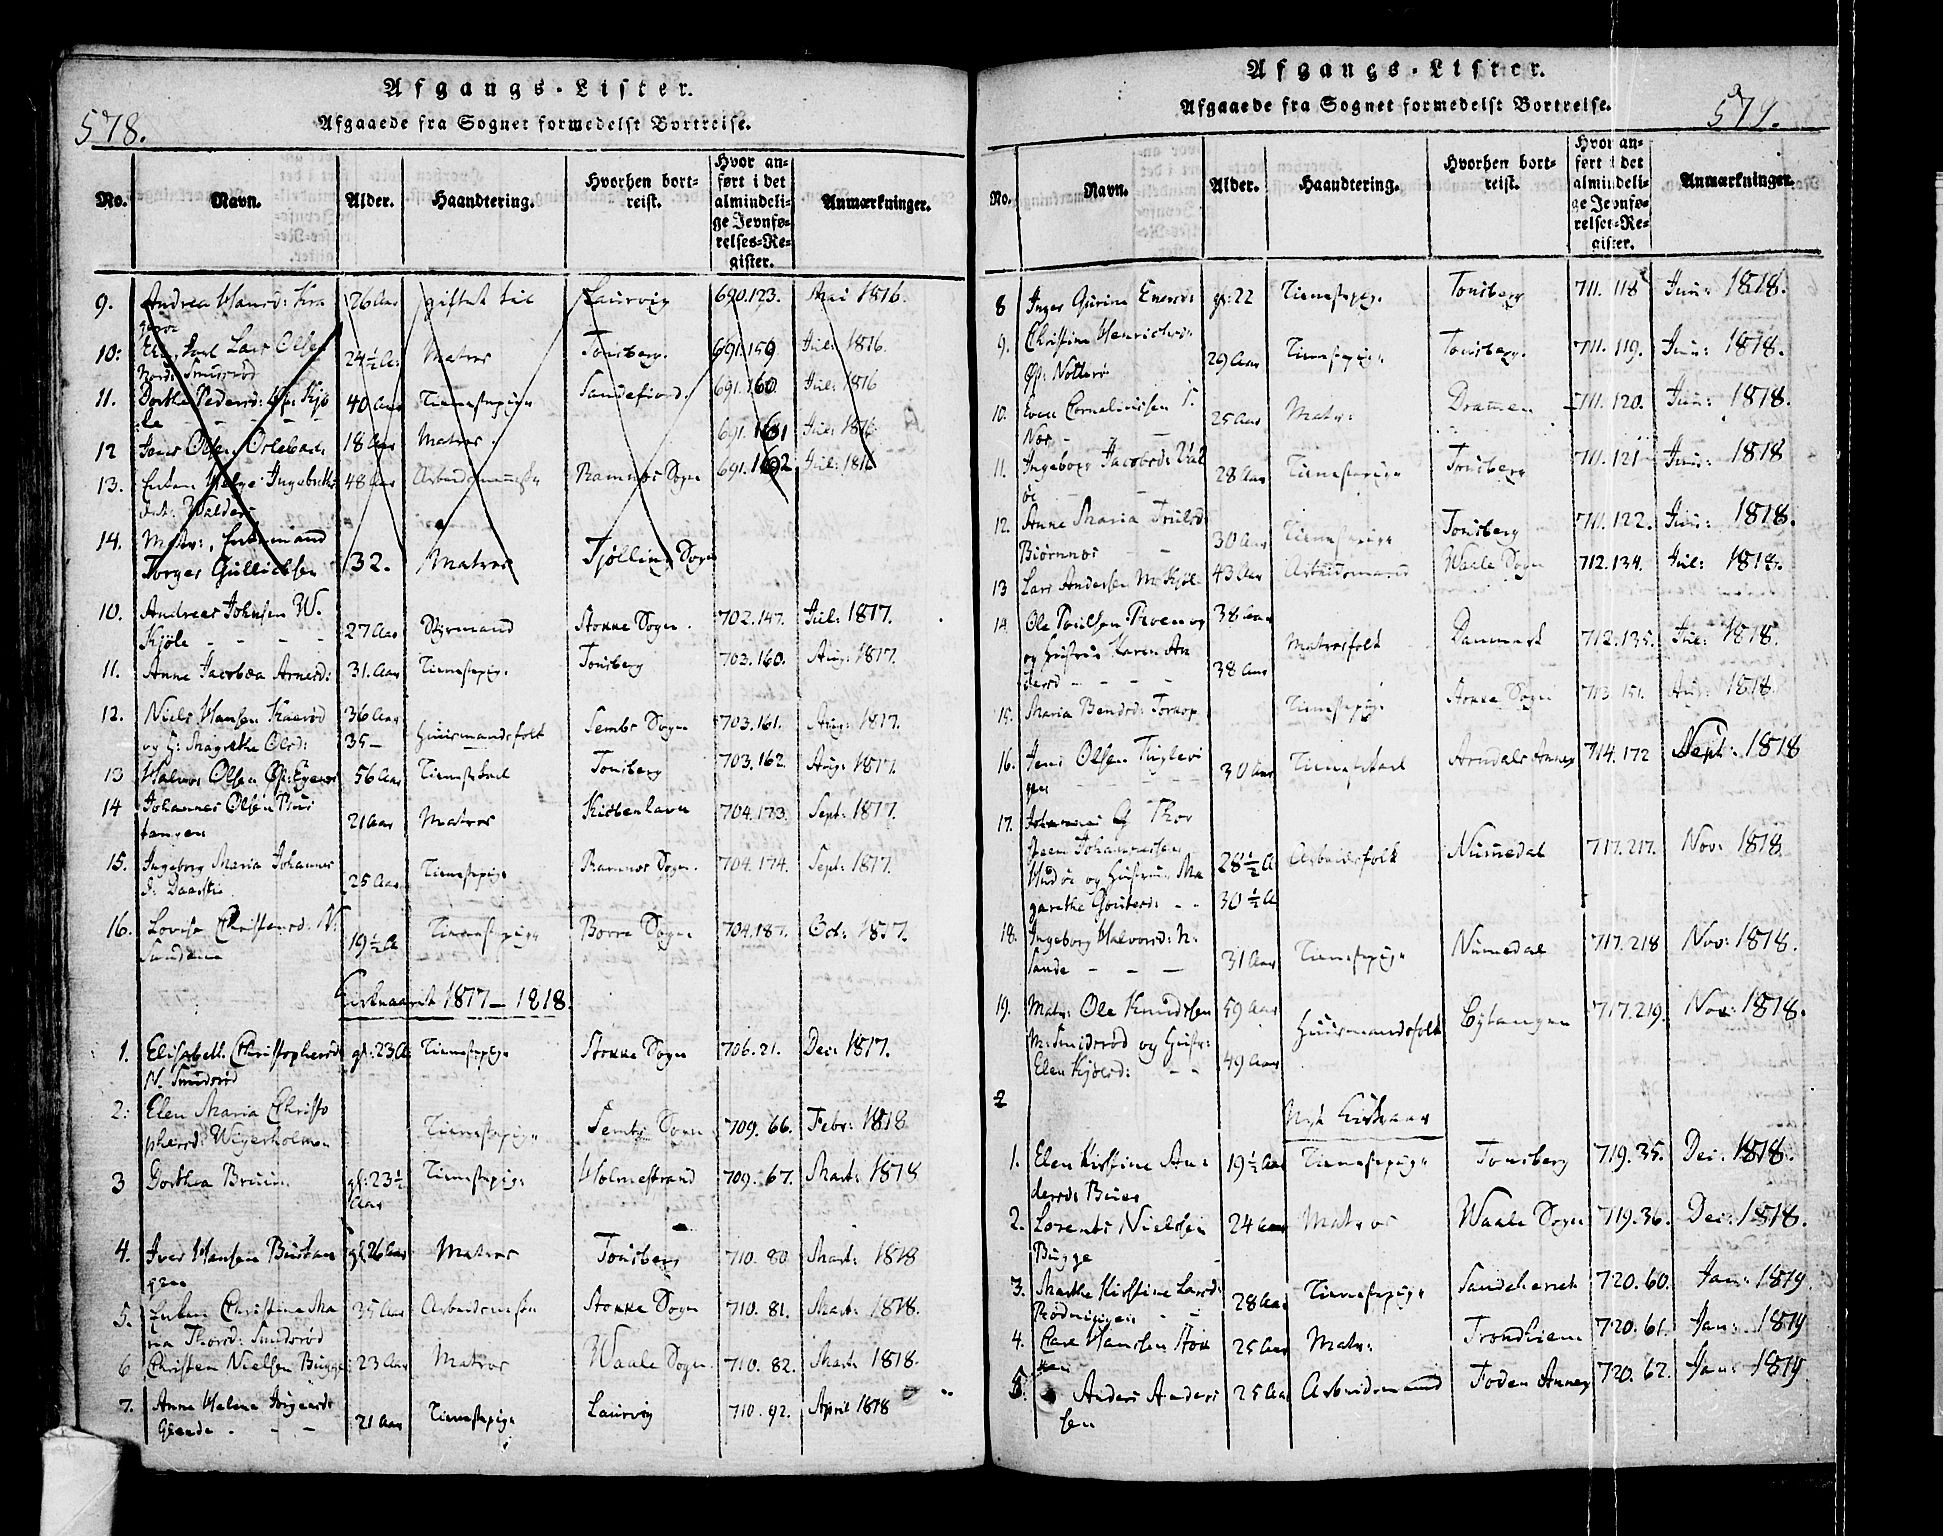 578.
Afgangs-Lister.
Afgaaede fra Sognet formedelst Bortreise.
No. Navn. Alder. Haandtering. Hvorhen bort-
reist. Hvor an-
ført i det
almindeli-
ge Jevnfø-
relses-Re-
gister. Anmærkninger.
9. Andrea Hansd: 26 Aar giftet til Laurvig 690.123. Mai 1816.
10: Lars Olsen 24½ A: Matros Tonsberg. 691.159 Jul: 1816.
11. Dorthe Pedersd: 40 Aar Tienestepige Sandefiord. 691.160 Jul: 1816
12 Jens Olsen 18 Aar Matros. 691.161 Jul: 1816
13. Enken Helge 48 Aar Ramnæs Sogn 691.162 Jul: 1816
14. Matr:, Enkemand
Torger Gullichsen 32. Matros Tjølling Sogn
10. Andreas Johnsen W.
Kjøle - - - 27 Aar Styrmand Stokke Sogn. 702.147. Jul: 1817.
11. Anne Jacobæa Arnesd: 31. Aar Tienestepig. Tonsberg 703.160. Aug: 1817.
12. Niels Hansen 36 Aar
og H: Magrethe Olsd: 35 - Huusmandsfolk Sembs Sogn 703.161. Aug: 1817.
13 Halvor Olsen 56 Aar Tienestekarl Tonsberg 703.162. Aug: 1817.
14 Johannes Olsen Bus
tangen 21 Aar Matros Kiøbenhavn 704.173. Sept: 1817.
15. Ingeborg Maria Johannes
25 Aar Tienestepige Ramnæs Sogn. 704.174. Sept: 1817.
16. Lovise Christensd. N.
Sundene 19½ A Tienestepige Borre Sogn 704.187. Oct: 1817.
Kirkeaaret 1817 - 1818.
1. Elisabeth Christophersd gl: 23 A Tienestepige Stokke Sogn 706.21. Dec: 1817.
N. Smidsrød
2: Elen Maria Christo
phersd: Tienestepige Sembs Sogn 709.66. Febr: 1818
3 Dorthea Bruun gl: 23½
Aar Tienestepige Holmestrand 709.67. Mart: 1818
4. Iver Hansen Bustan
gen gl 26 Aar Matros Tonsberg 710.80 Mart: 1818
5. Enken Christine Ma
ria Thorsd: Smidsrød 35 Aar Stokke Sogn 710.81. Mart: 1818.
6 Christen Nielsen Bugge 23 Aar Matros Waale Sogn. 710.82. Mart: 1818.
7. Anne Helene
Glende - - - 21 Aar Tienestepige Laurvig 710.92. April 1818
579.
Afgangs-Lister.
Afgaaede fra Sognet formedelst Bortreise.
No. Navn. Alder. Haandtering. Hvorhen bort-
reist. Hvor an-
ført i det
almindeli-
ge Jevnfø-
relses-Re-
gister. Anmærkninger.
8 Inger Gurine Enersd: gl: 22 Tienestepige. Tonsberg 711.118 Juni: 1818.
9. Christine Henrichsd:
Øst: Nøtterø 29 Aar Tienestepige Tonsberg. 711.119. Juni: 1818.
10. Even Corneliussen
25 Aar Matr: Dramen 711.120. Juni: 1818.
11. Ingeborg Jacobsd: Val
øe - - 28 Aar Tienestepige Tonsberg 711.121 Juni: 1818
12. Anne Maria Trulsd:
Biørnnes - 30 Aar Tienestepige Tonsberg 711.122. Juni: 1818.
13 Lars Andersen 43 Aar Arbeidsmand Waale Sogn 712.134. Jul: 1818.
14 Ole Poulsen 38 Aar
og Hustrue Karen An
dersd - - - 38 Aar Matrosfolk Danmark 712.135. Jul: 1818.
15. Maria Bendsd: Torkop Tienestepige Stokke Sogn 713.151. Aug: 1818.
16. Jens Olsen
30 Aar Tienestekarl Arndals Annex 714.172 Sept: 1818
17. Johannes
Johannessen
Hudøe og Hustrue Ma 28½ A Arbeidsfolk Numedal 717.217. Nov: 1818.
grethe - - 30½ A
18. Ingeborg Halvorsd: N.
Sande - - - 31 Aar Tienestepige Numedal 717.218 Nov: 1818.
19. Matr: Ole Knudssen 59 Aar
M: Smidsrød og Hustr: Huusmandsfolk 717.219. Nov: 1818.
Elen - - 49 Aar
2
Nyt Kirkeaar
1. Elen Kirstine An: 19½ Aar Tienestepige Tonsberg 719.35. Dec: 1818.
dersd: Buer
2. Lorents Nielsen 24 Aar Matros Waale Sogn 719.36. Dec: 1818.
Bugge
3. Marthe Kirstine Larsd: 28 Aar Tienestepige Sandeherred 720.60. Jan: 1819.
4. Carl Hansen 25 Aar Matr: Trondhiem 720.61. Jan: 1819
5. Anders Anders
sen 25 Aar Arbeidsmand Foden Annex 720.62. Jan: 1819.